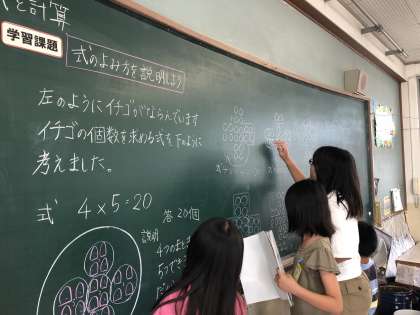 式と計算
学習課題
式のよみ方を説明しよう
左のようにイチゴがならんでいます
イチゴの個数を求める式を下のように
考えました。
式 4×5=20
答 20個
説明
4つのまと
5つできる